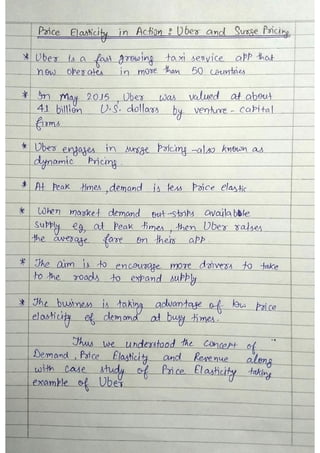 Price Elasticity in Action : Uber and Surge Pricing
* Uber is a fast growing taxi service app that
now operates in more than 50 countries
* In May 2015, Uber was valued at about
41 billion U.S. dollars by venture-capital
firms
* Uber engages in surge pricing -also known as
dynamic Pricing
* At peak times, demand is less Price elastic
* When market demand out-strips available
supply eg, at peak times, then Uber raises
the average fare on their app
* The aim is to encourage more drivers to take
to the roads to expand supply
* The business is taking advantage of low price
elasticity of demand at busy times.
Thus we understood the concept of
Demand, Price Elasticity and Revenue along
with case study of Price Elasticity taking
example of Uber